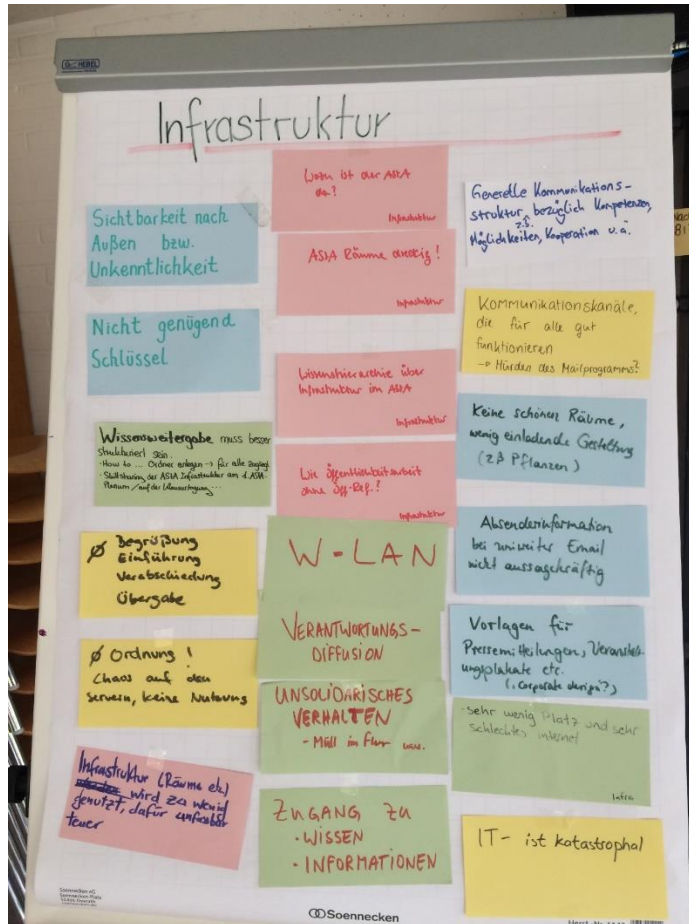 G. HEBEL
Infrastruktur
Sichtbarkeit nach
Außen bzw.
Unkenntlichkeit
Nicht genügend
Schlüssel
Wissensweitergabe muss besser
strukturiert sein.
- How to ... Ordner anlegen → für alle
- Skillsharing der AStA Infrastruktur am 1. AStA-
Plenum / auf der Klausurtagung ...
Ø Begrüßung
Einführung
Verabschiedung
Übergabe
Ø Ordnung !
Chaos auf den
Servern, keine Nutzung
Infrastruktur (Räume etc.)
wird zu wenig
genutzt, dafür unfassbar
teuer
Wozu ist der AStA
da?
Infrastruktur
AStA Räume dreckig !
Infrastruktur
Wissenshierarchie über
Infrastruktur im AStA
Infrastruktur
Wie Öffentlichkeitsarbeit
ohne Öff-Ref.?
Infrastruktur
W-LAN
VERANTWORTUNGS-
DIFFUSION
UNSOLIDARISCHES
VERHALTEN
- Müll im Flur usw.
ZUGANG ZU
· WISSEN
· INFORMATIONEN
Generelle Kommunikations-
struktur z.B. bezüglich Kompetenzen,
Möglichkeiten, Kooperation u.ä.
Kommunikationskanäle,
die für alle gut
funktionieren
→ Hürden des Mailprogramms?
Keine schönen Räume,
wenig einladende Gestaltung
(zB Pflanzen)
Absenderinformation
bei uniweiter Email
nicht aussagekräftig
Vorlagen für
Pressemitteilungen, Veranstalt-
ungsplakate etc.
(Corporate design?)
- sehr wenig Platz und sehr
schlechtes internet
Infra
IT- ist katastrophal
Soennecken eG
Soennecken-Platz
51491 Overath
Soennecken